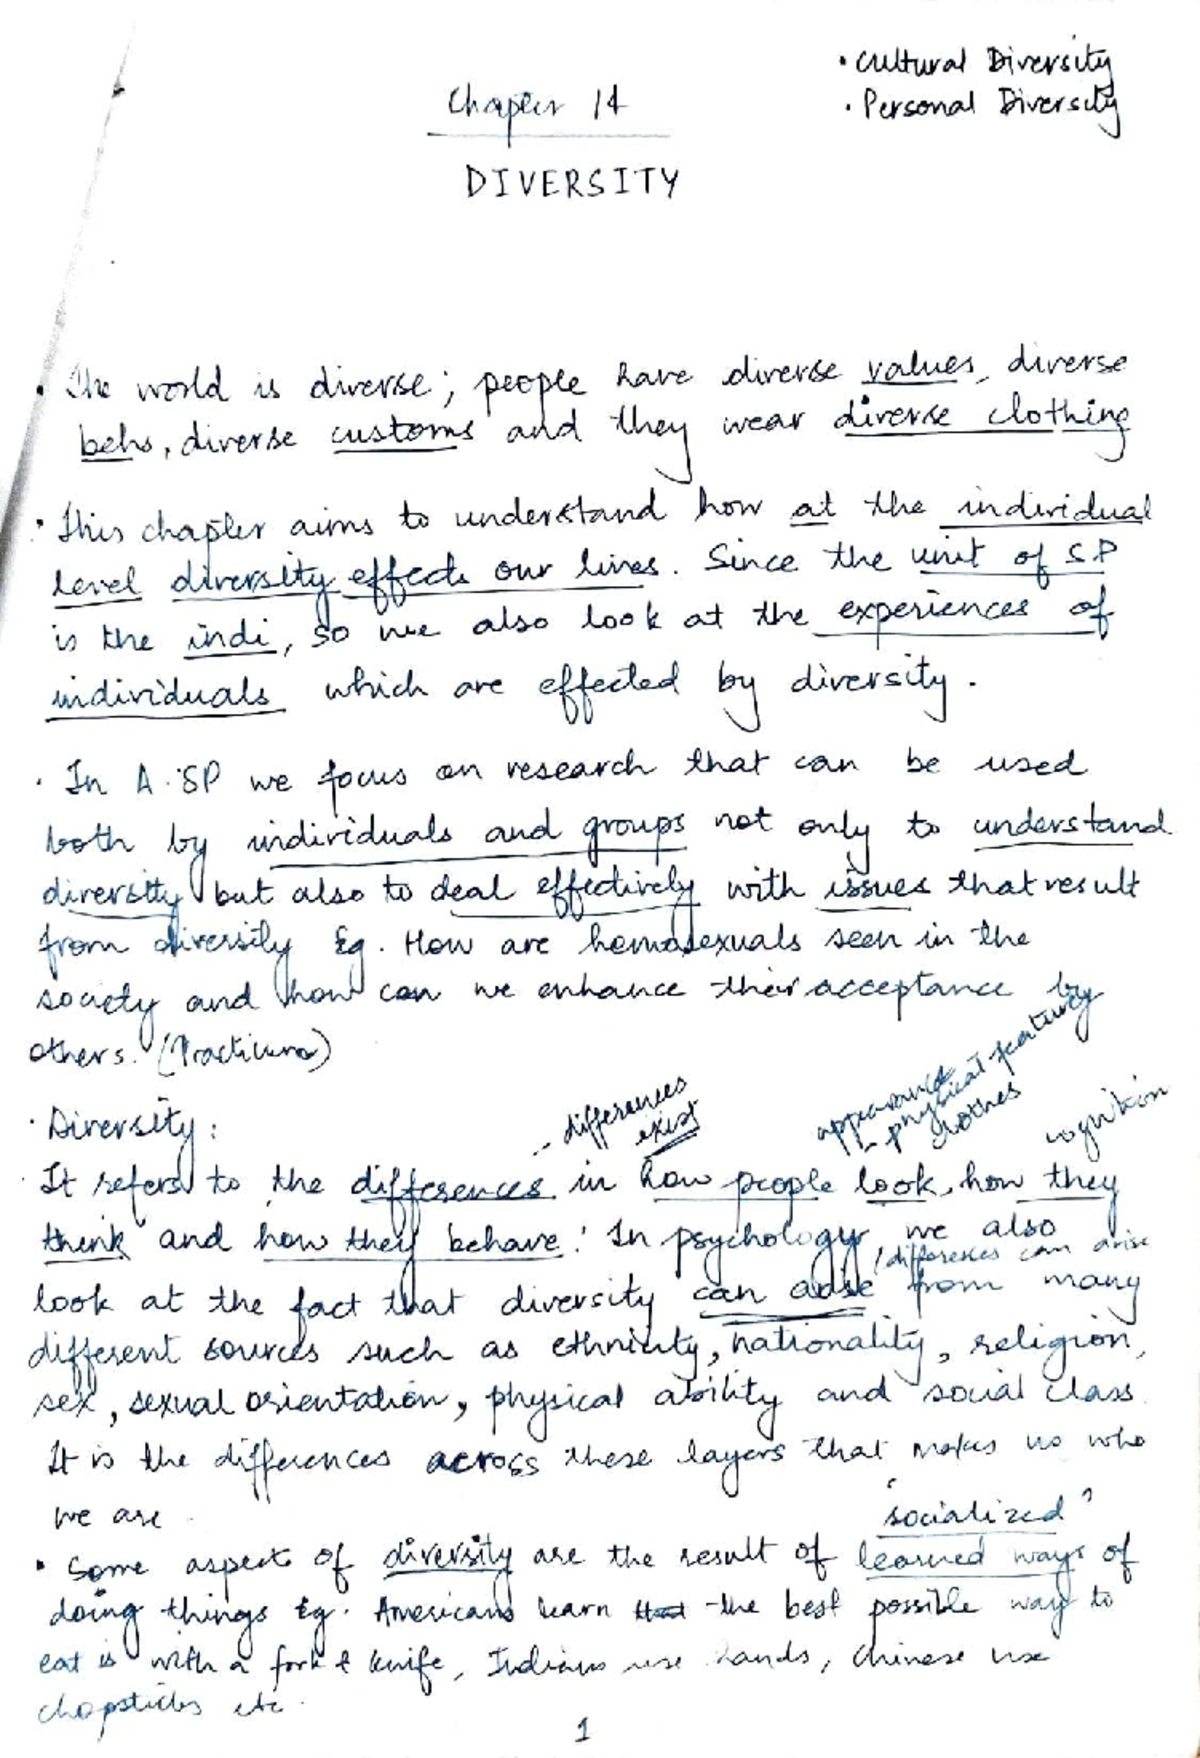 • Cultural Diversity
• Personal Diversity
Chapter 14
DIVERSITY
• The world is diverse; people have diverse values, diverse
behs, diverse customs and they wear diverse clothing
• This chapter aims to understand how at the individual
level diversity effects our lives. Since the unit of S.P
is the indi, so we also look at the experiences of
individuals which are effected by diversity.
• In A.SP we focus on research that can be used
both by individuals and groups not only to understand
diversity but also to deal effectively with issues that result
from diversity Eg. How are homosexuals seen in the
society and how can we enhance their acceptance by
others. (Practicum)
differences
exist
appearance
- physical features
clothes
cognition
• Diversity:
• It refers to the differences in how people look, how they
think and how they behave. In psychology, we also
differences can arise
look at the fact that diversity can arise from many
different sources such as ethnicity, nationality, religion,
sex, sexual orientation, physical ability and social class.
It is the differences across these layers that makes us who
we are.
'socialized'
• Some aspects of diversity are the result of learned ways of
doing things Eg. Americans learn the best possible way to
eat is with a fork & knife, Indians use hands, Chinese use
chopsticks etc.
1